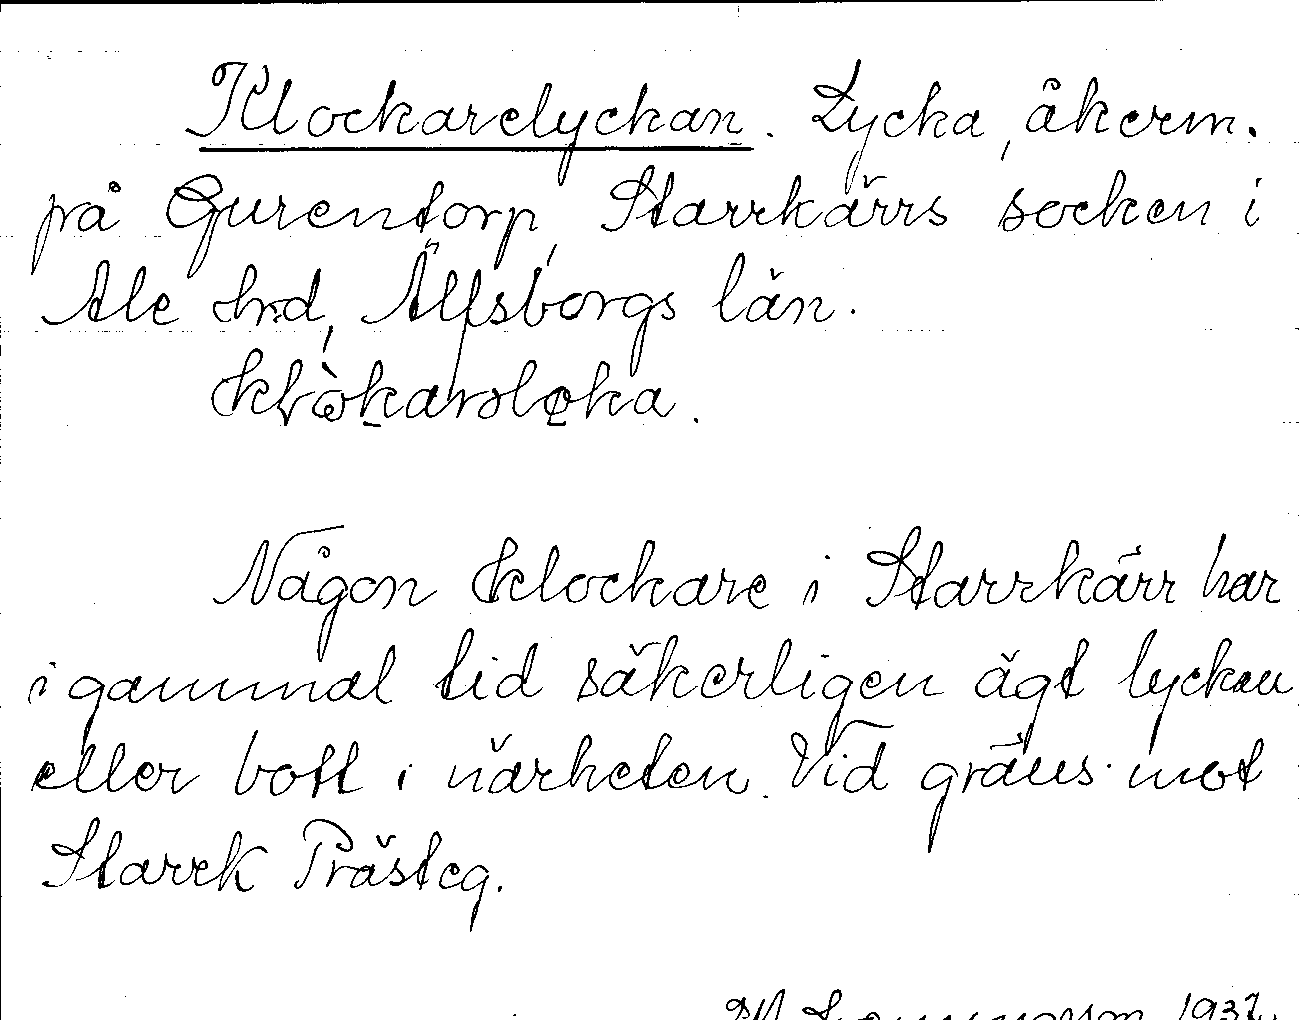 Klockarelyckan. Lycka, åkerm.
på Gurentorp, Starrkärrs socken i
Ale hrd, Älfsborgs län.
Någon klockare i Starrkärr har
i gammal tid säkerligen ägt lyckan
eller bott i närheten. Vid gräns mot
Starrk Prästeg.
1937.